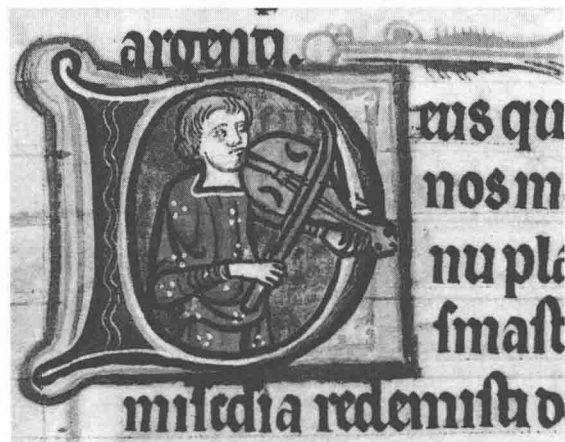 argenti.
Deus qu
nos m
nu pla
ſmaſt
miſcdia redemiſti